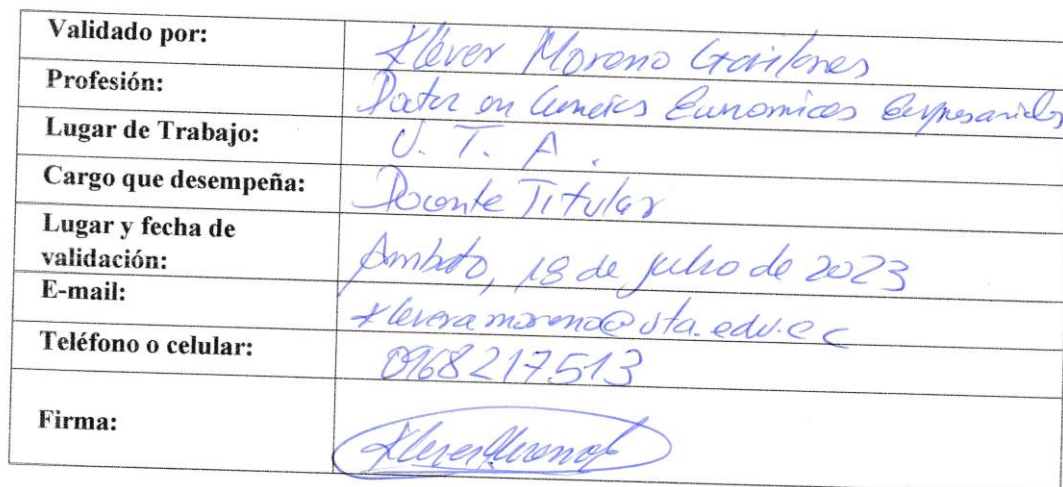 Validado por: Kléver Moreno Gavilanes
Profesión: Doctor en Ciencias Económicas Empresariales
Lugar de Trabajo: U. T. A.
Cargo que desempeña: Docente Titular
Lugar y fecha de
validación: Ambato, 18 de julio de 2023
E-mail: kleveramoreno@uta.edu.ec
Teléfono o celular: 0968217513
Firma: